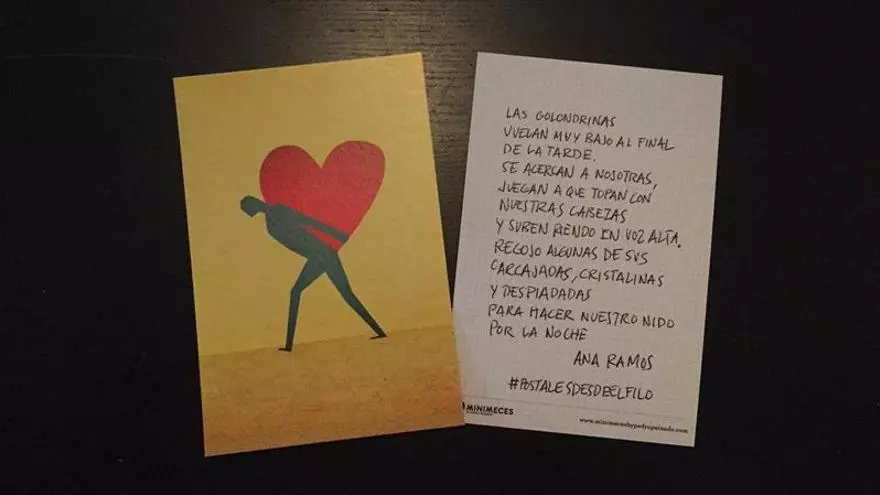 LAS GOLONDRINAS
VUELAN MUY BAJO AL FINAL
DE LA TARDE.
SE ACERCAN A NOSOTRAS,
JUEGAN A QUE TOPAN CON
NUESTRAS CABEZAS
Y SUBEN RIENDO EN VOZ ALTA.
REGOJO ALGUNAS DE SUS
CARCAJADAS, CRISTALINAS
Y DESPIADADAS
PARA HACER NUESTRO NIDO
POR LA NOCHE
ANA RAMOS
#POSTALESDESDEELFILO
MINIMECES
www.minimecesbypedropeinado.com